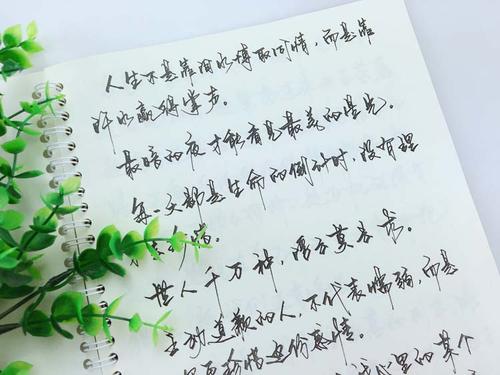 人生不是靠泪水博取同情，而是靠
汗水赢得掌声。
最暗的夜才能看见最美的星光。
每一天都是生命的倒计时，没有理
世人千万种，浓淡莫去求。
主动道歉的人，不代表懦弱，而是
更珍惜这份感情。
心里的某个